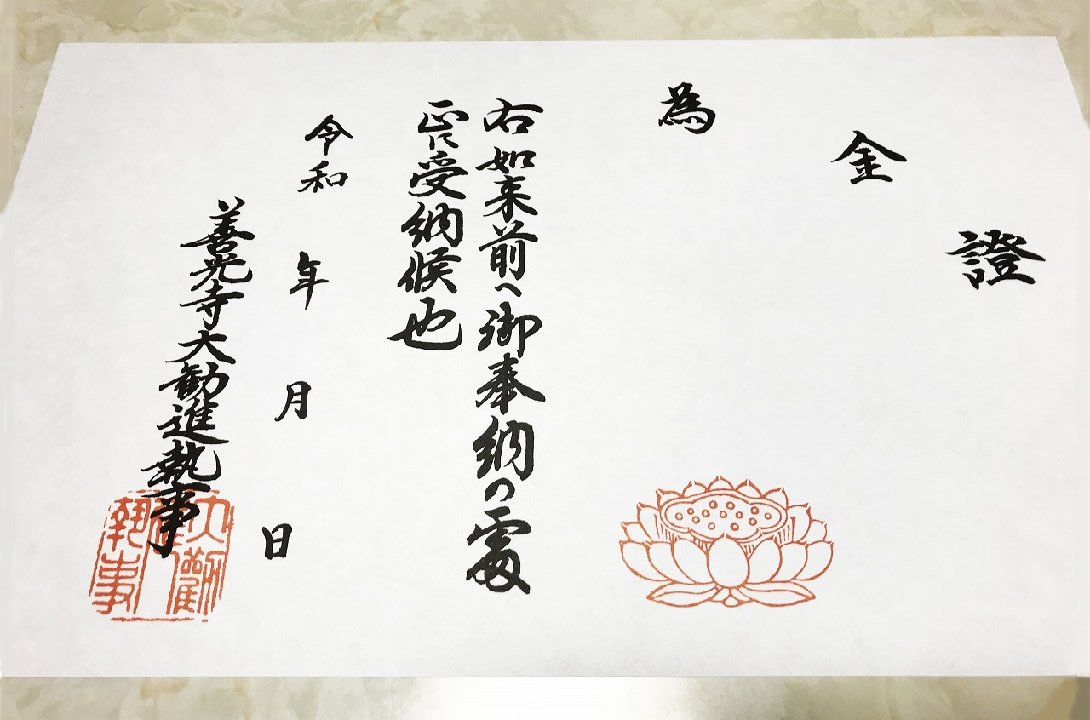 證
金
為
右如来前へ御奉納の處
正に受納候也
令和 年 月 日
善光寺大勧進執事
大勸
執事